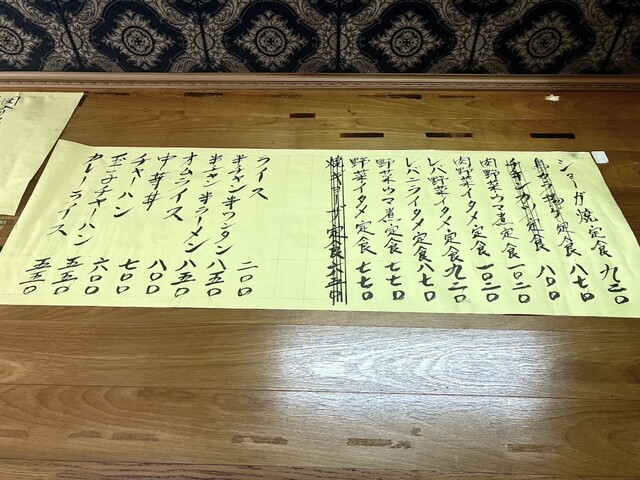 ショーガ焼定食 九二〇
鳥カラ揚ゲ定食 八七〇
チキンカツ定食 八〇〇
肉野菜ウマ煮定食 一〇二〇
肉野菜イタメ定食 一〇二〇
レバ野菜イタメ定食 九二〇
レバニライタメ定食 八七〇
野菜ウマ煮定食 七七〇
野菜イタメ定食 七七〇
定食 六五〇
ライス 二〇〇
半チャン半ワンタン 八五〇
半チャン半ラーメン 八五〇
オムライス 八五〇
中華丼 八〇〇
チャーハン 七〇〇
玉子チャーハン 六〇〇
カレーライス 五五〇
五五〇